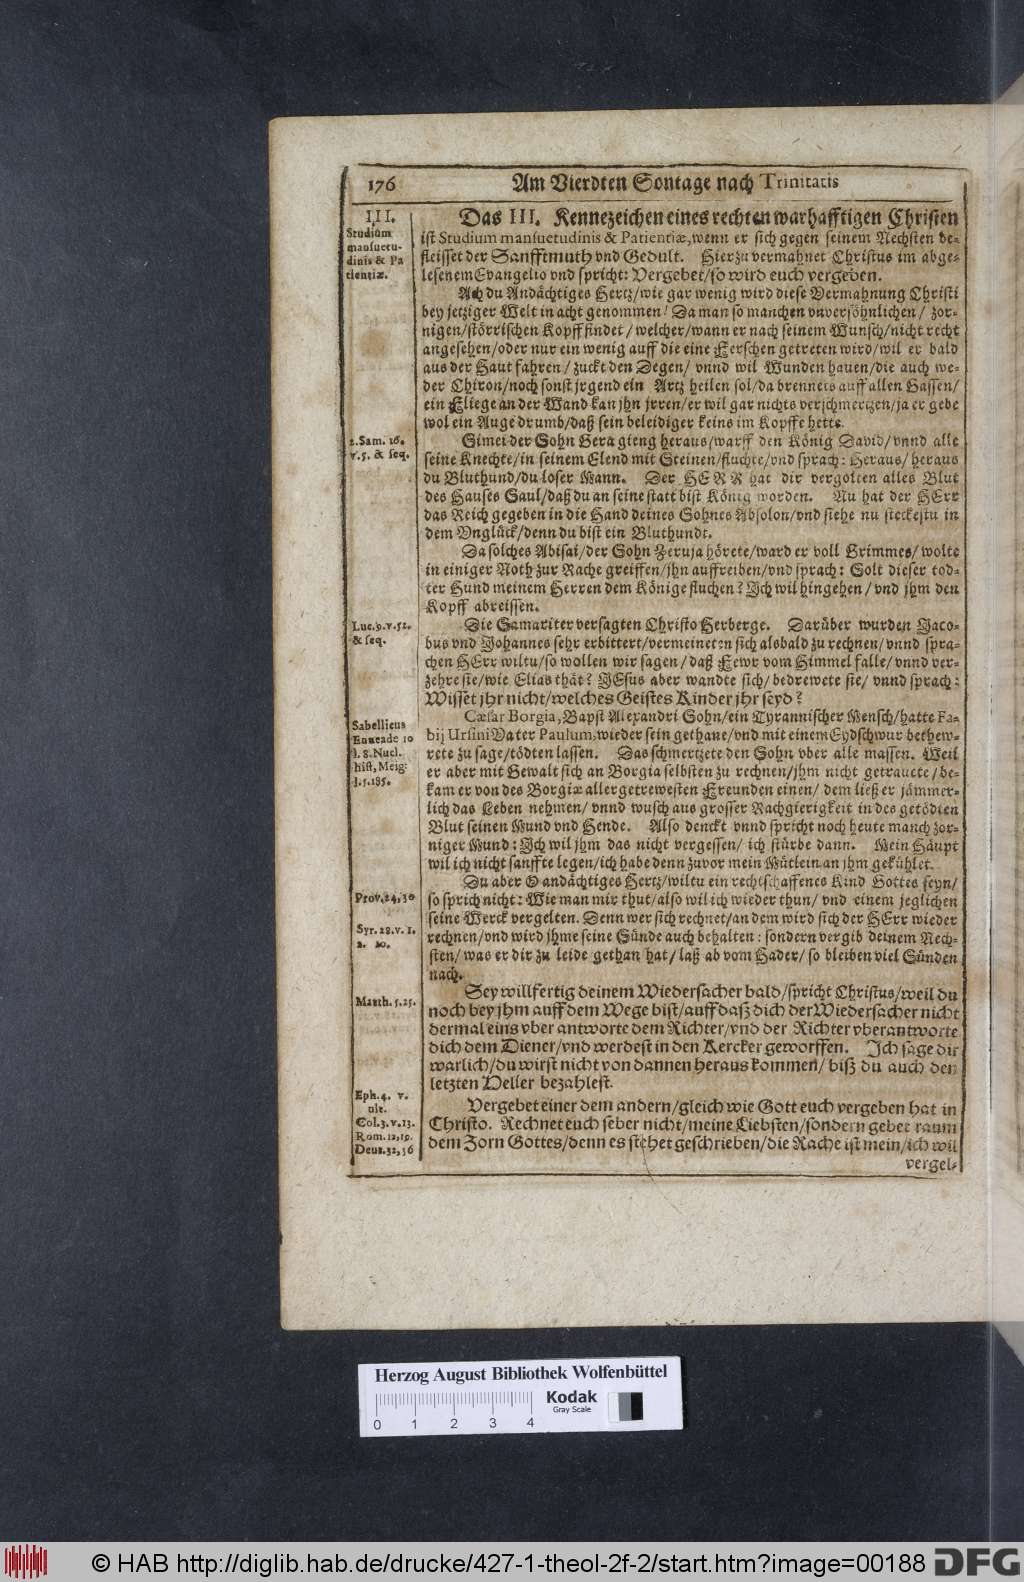 176 Am Vierdten Sontage nach Trinitatis
III.
Studium
mansuetu-
dinis & Pa
tientiæ.
Das III. Kennezeichen eines rechten warhafftigen Christen
ist Studium mansuetudinis & Patientiæ, wenn er sich gegen seinem Nechsten be-
fleisset der Sanfftmuth vnd Gedult. Hierzu vermahnet Christus im abge-
lesenem Evangelio vnd spricht: Vergebet/ so wird euch vergeben.
Ach du Andächtiges Hertz/ wie gar wenig wird diese Vermahnung Christi
bey jetziger Welt in acht genommen! Da man so manchen vnversöhnlichen/ zor-
nigen/ störrischen Kopff findet/ welcher/ wann er nach seinem Wunsch/ nicht recht
angesehen/ oder nur ein wenig auff die eine Ferschen getreten wird/ wil er bald
aus der Haut fahren/ zuckt den Degen/ vnnd wil Wunden hauen/ die auch we-
der Chiron/ noch sonst jrgend ein Artz heilen sol/ da brennets auff allen Gassen/
ein Fliege an der Wand kan jhn jrren/ er wil gar nichts verschmertzen/ ja er gebe
wol ein Auge drumb/ daß sein beleidiger keins im Kopffe hette.
2. Sam. 16.
v. 5. & seq.
Simei der Sohn Gera gieng heraus/ warff den König David/ vnnd alle
seine Knechte/ in seinem Elend mit Steinen/ fluchte/ vnd sprach: Heraus/ heraus
du Bluthund/ du loser Mann. Der HERR hat dir vergolten alles Blut
des Hauses Saul/ daß du an seine statt bist König worden. Nu hat der HErr
das Reich gegeben in die Hand deines Sohnes Absolon/ vnd siehe nu steckestu in
dem Vnglück/ denn du bist ein Bluthundt.
Da solches Abisai/ der Sohn Zeruja hörete/ ward er voll Grimmes/ wolte
in einiger Noth zur Rache greiffen/ jhn auffreiben/ vnd sprach: Solt dieser tod-
ter Hund meinem Herren dem Könige fluchen? Ich wil hingehen/ vnd jhm den
Kopff abreissen.
Luc. 9. v. 52.
& seq.
Die Samariter versagten Christo Herberge. Darüber wurden Jaco-
bus vnd Johannes sehr erbittert/ vermeineten sich alsbald zu rechnen/ vnnd spra-
chen HErr wiltu/ so wollen wir sagen/ daß Fewr vom Himmel falle/ vnnd ver-
zehre sie/ wie Elias thät? JEsus aber wandte sich/ bedrewete sie/ vnnd sprach:
Wisset jhr nicht/ welches Geistes Kinder jhr seyd?
Sabellicus
Enneade 10
l. 8. Nucl.
hist. Meig:
l. 5. 185.
Cæsar Borgia, Bapst Alexandri Sohn/ ein Tyrannischer Mensch/ hatte Fa-
bij Ursini Vater Paulum, wieder sein gethane/ vnd mit einem Eydschwur bethew-
rete zu sage/ tödten lassen. Das schmertzete den Sohn vber alle massen. Weil
er aber mit Gewalt sich an Borgia selbsten zu rechnen/ jhm nicht getrauete/ be-
kam er von des Borgiæ allergetrewesten Freunden einen/ dem ließ er jämmer-
lich das Leben nehmen/ vnnd wusch aus grosser Rachgierigkeit in des getödten
Blut seinen Mund vnd Hende. Also denckt vnnd spricht noch heute manch zor-
niger Mund: Ich wil jhm das nicht vergessen/ ich stürbe dann. Mein Häupt
wil ich nicht sanffte legen/ ich habe denn zuvor mein Mütlein an jhm gekühlet.
Prov. 24, 30
Syr. 28. v. 1.
2. 10.
Du aber O andächtiges Hertz/ wiltu ein rechtschaffenes Kind Gottes seyn/
so sprich nicht: Wie man mir thut/ also wil ich wieder thun/ vnd einem jeglichen
seine Werck vergelten. Denn wer sich rechnet/ an dem wird sich der HErr wieder
rechnen/ vnd wird jhme seine Sünde auch behalten: sondern vergib deinem Nech-
sten/ was er dir zu leide gethan hat/ laß ab vom Hader/ so bleiben viel Sünden
nach.
Matth. 5. 25.
Sey willfertig deinem Wiedersacher bald/ spricht Christus/ weil du
noch bey jhm auff dem Wege bist/ auff daß dich der Wiedersacher nicht
dermal eins vber antworte dem Richter/ vnd der Richter vberantworte
dich dem Diener/ vnd werdest in den Kercker geworffen. Ich sage dir
warlich/ du wirst nicht von dannen heraus kommen/ biß du auch den
letzten Heller bezahlest.
Eph. 4. v.
ult.
Col. 3. v. 13.
Rom. 12, 19.
Deut. 32, 36
Vergebet einer dem andern/ gleich wie Gott euch vergeben hat in
Christo. Rechnet euch selber nicht/ meine Liebsten/ sondern gebet raum
dem Zorn Gottes/ denn es stehet geschrieben/ die Rache ist mein/ ich wil
vergel-
Herzog August Bibliothek Wolfenbüttel
Kodak
Gray Scale
0 1 2 3 4
© HAB http://diglib.hab.de/drucke/427-1-theol-2f-2/start.htm?image=00188 DFG